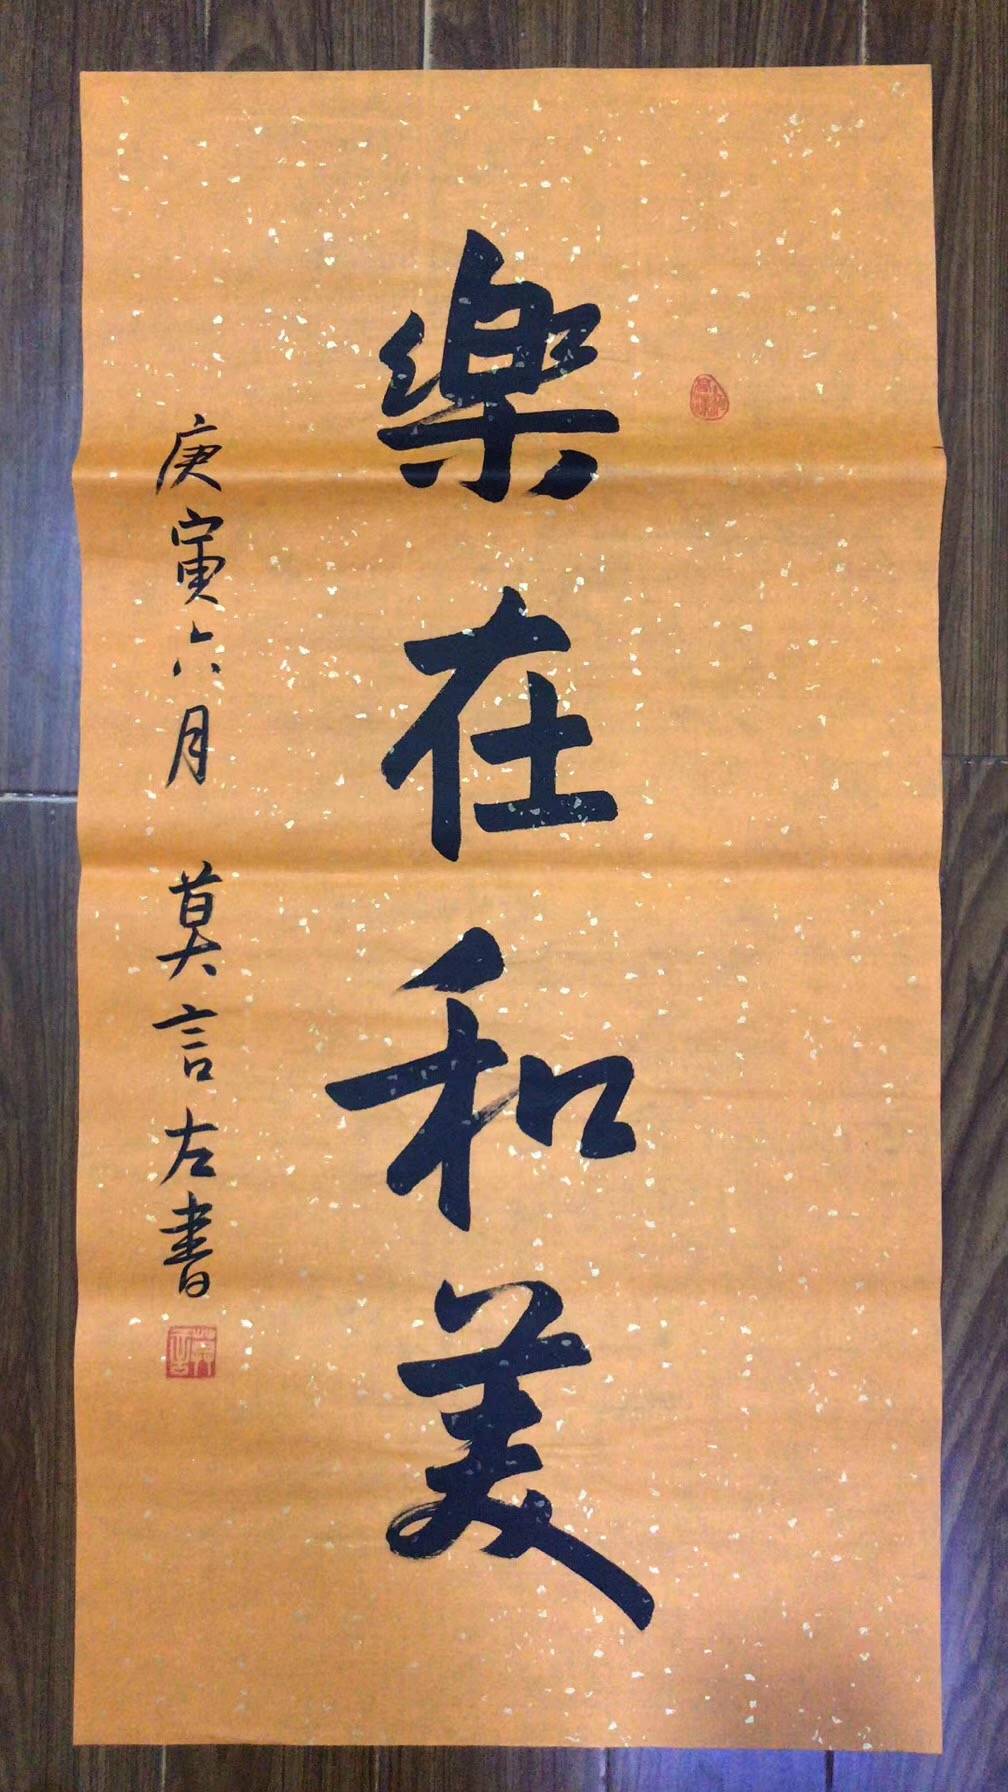 樂在和美
庚寅六月 莫言左書